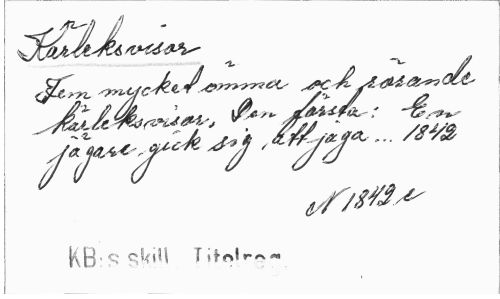 Kärleksvisor
Fem mycket ömma och rörande
kärleksvisor. Den första: En
jägare gick sig att jaga... 1842
N 1842 c
KB:s skill. Titelreg.